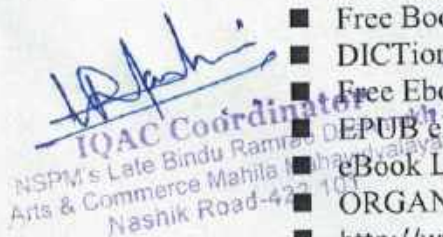 ■ Free Boo
■ DICTion
■ Free Ebo
■ EPUB e
■ eBook L
■ ORGAN
IQAC Coordinator
NSPM's Late Bindu Ramrao
Arts & Commerce Mahila Mahavidyalaya
Nashik Road-422 101